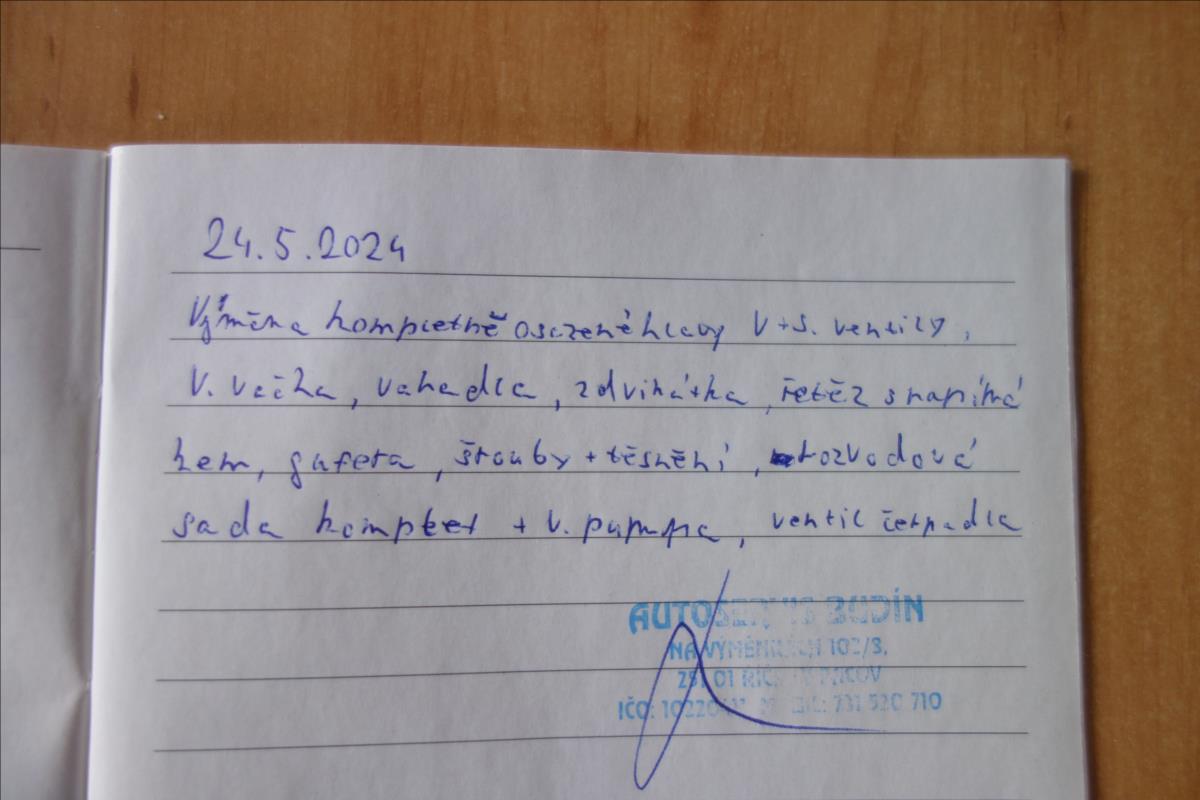 24.5.2024
Výměna kompletně osazené hlavy V+S. ventily,
V. vačka, vahadla, zdvihátka, řetěz s napíná
kem, gufera, šrouby + těsnění, rozvodová
sada komplet + V. pumpa, ventil čerpadla
AUTOSERVIS BUDÍN
NA VÝMĚNKÁCH 102/8,
251 01
IČO: 731 520 710